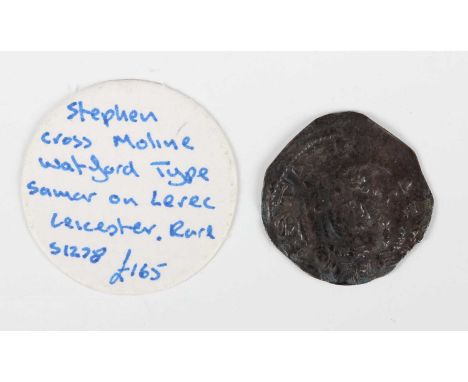 Stephen
cross Moline
Watford Type
Samar on Lerec
Leicester. Rare
S1278
£165